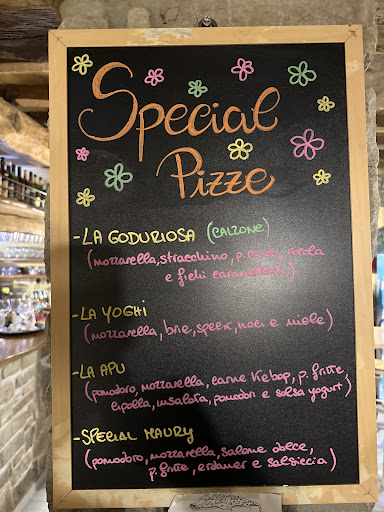 Special
Pizze
- LA GODURIOSA (CALZONE)
(mozzarella, stracchino, p. crudo, rucola
e fichi caramellati)
- LA YOGHI
(mozzarella, brie, speck, noci e miele)
- LA APU
(pomodoro, mozzarella, carne Kebap, p. fritte,
cipolla, insalata, pomodori e salsa yogurt)
- SPECIAL MAURY
(pomodoro, mozzarella, salame dolce,
p. fritte, edamer e salsiccia)